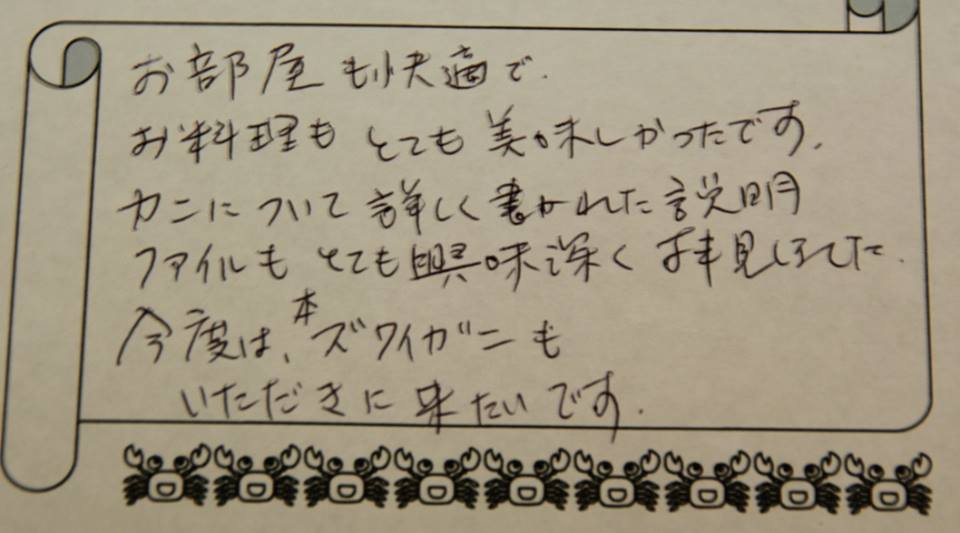 お部屋も快適で、
お料理もとても美味しかったです。
カニについて詳しく書かれた説明
ファイルもとても興味深く拝見しました。
今度は、本ズワイガニも
いただきに来たいです。